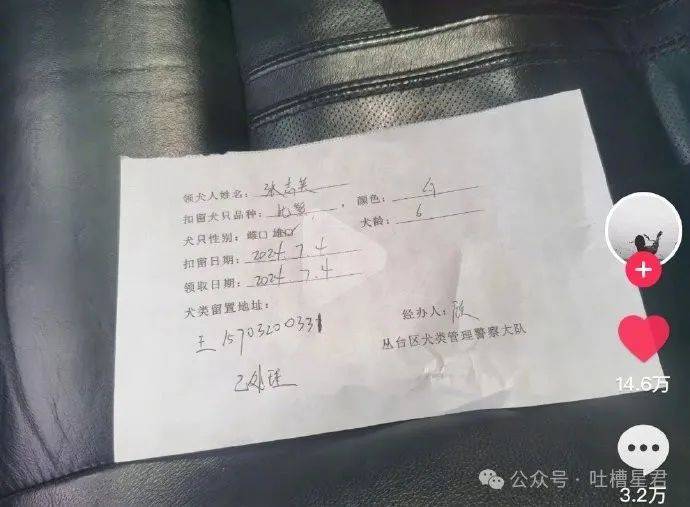 领犬人姓名：张志英
扣留犬只品种：比熊，颜色：白
犬只性别：雌口 雄口 犬龄：6
扣留日期：2024.7.4
领取日期：2024.7.4
犬类留置地址：
王 15703200331 经办人：
丛台区犬类管理警察大队
已处理
14.6万
3.2万
公众号·吐槽星君